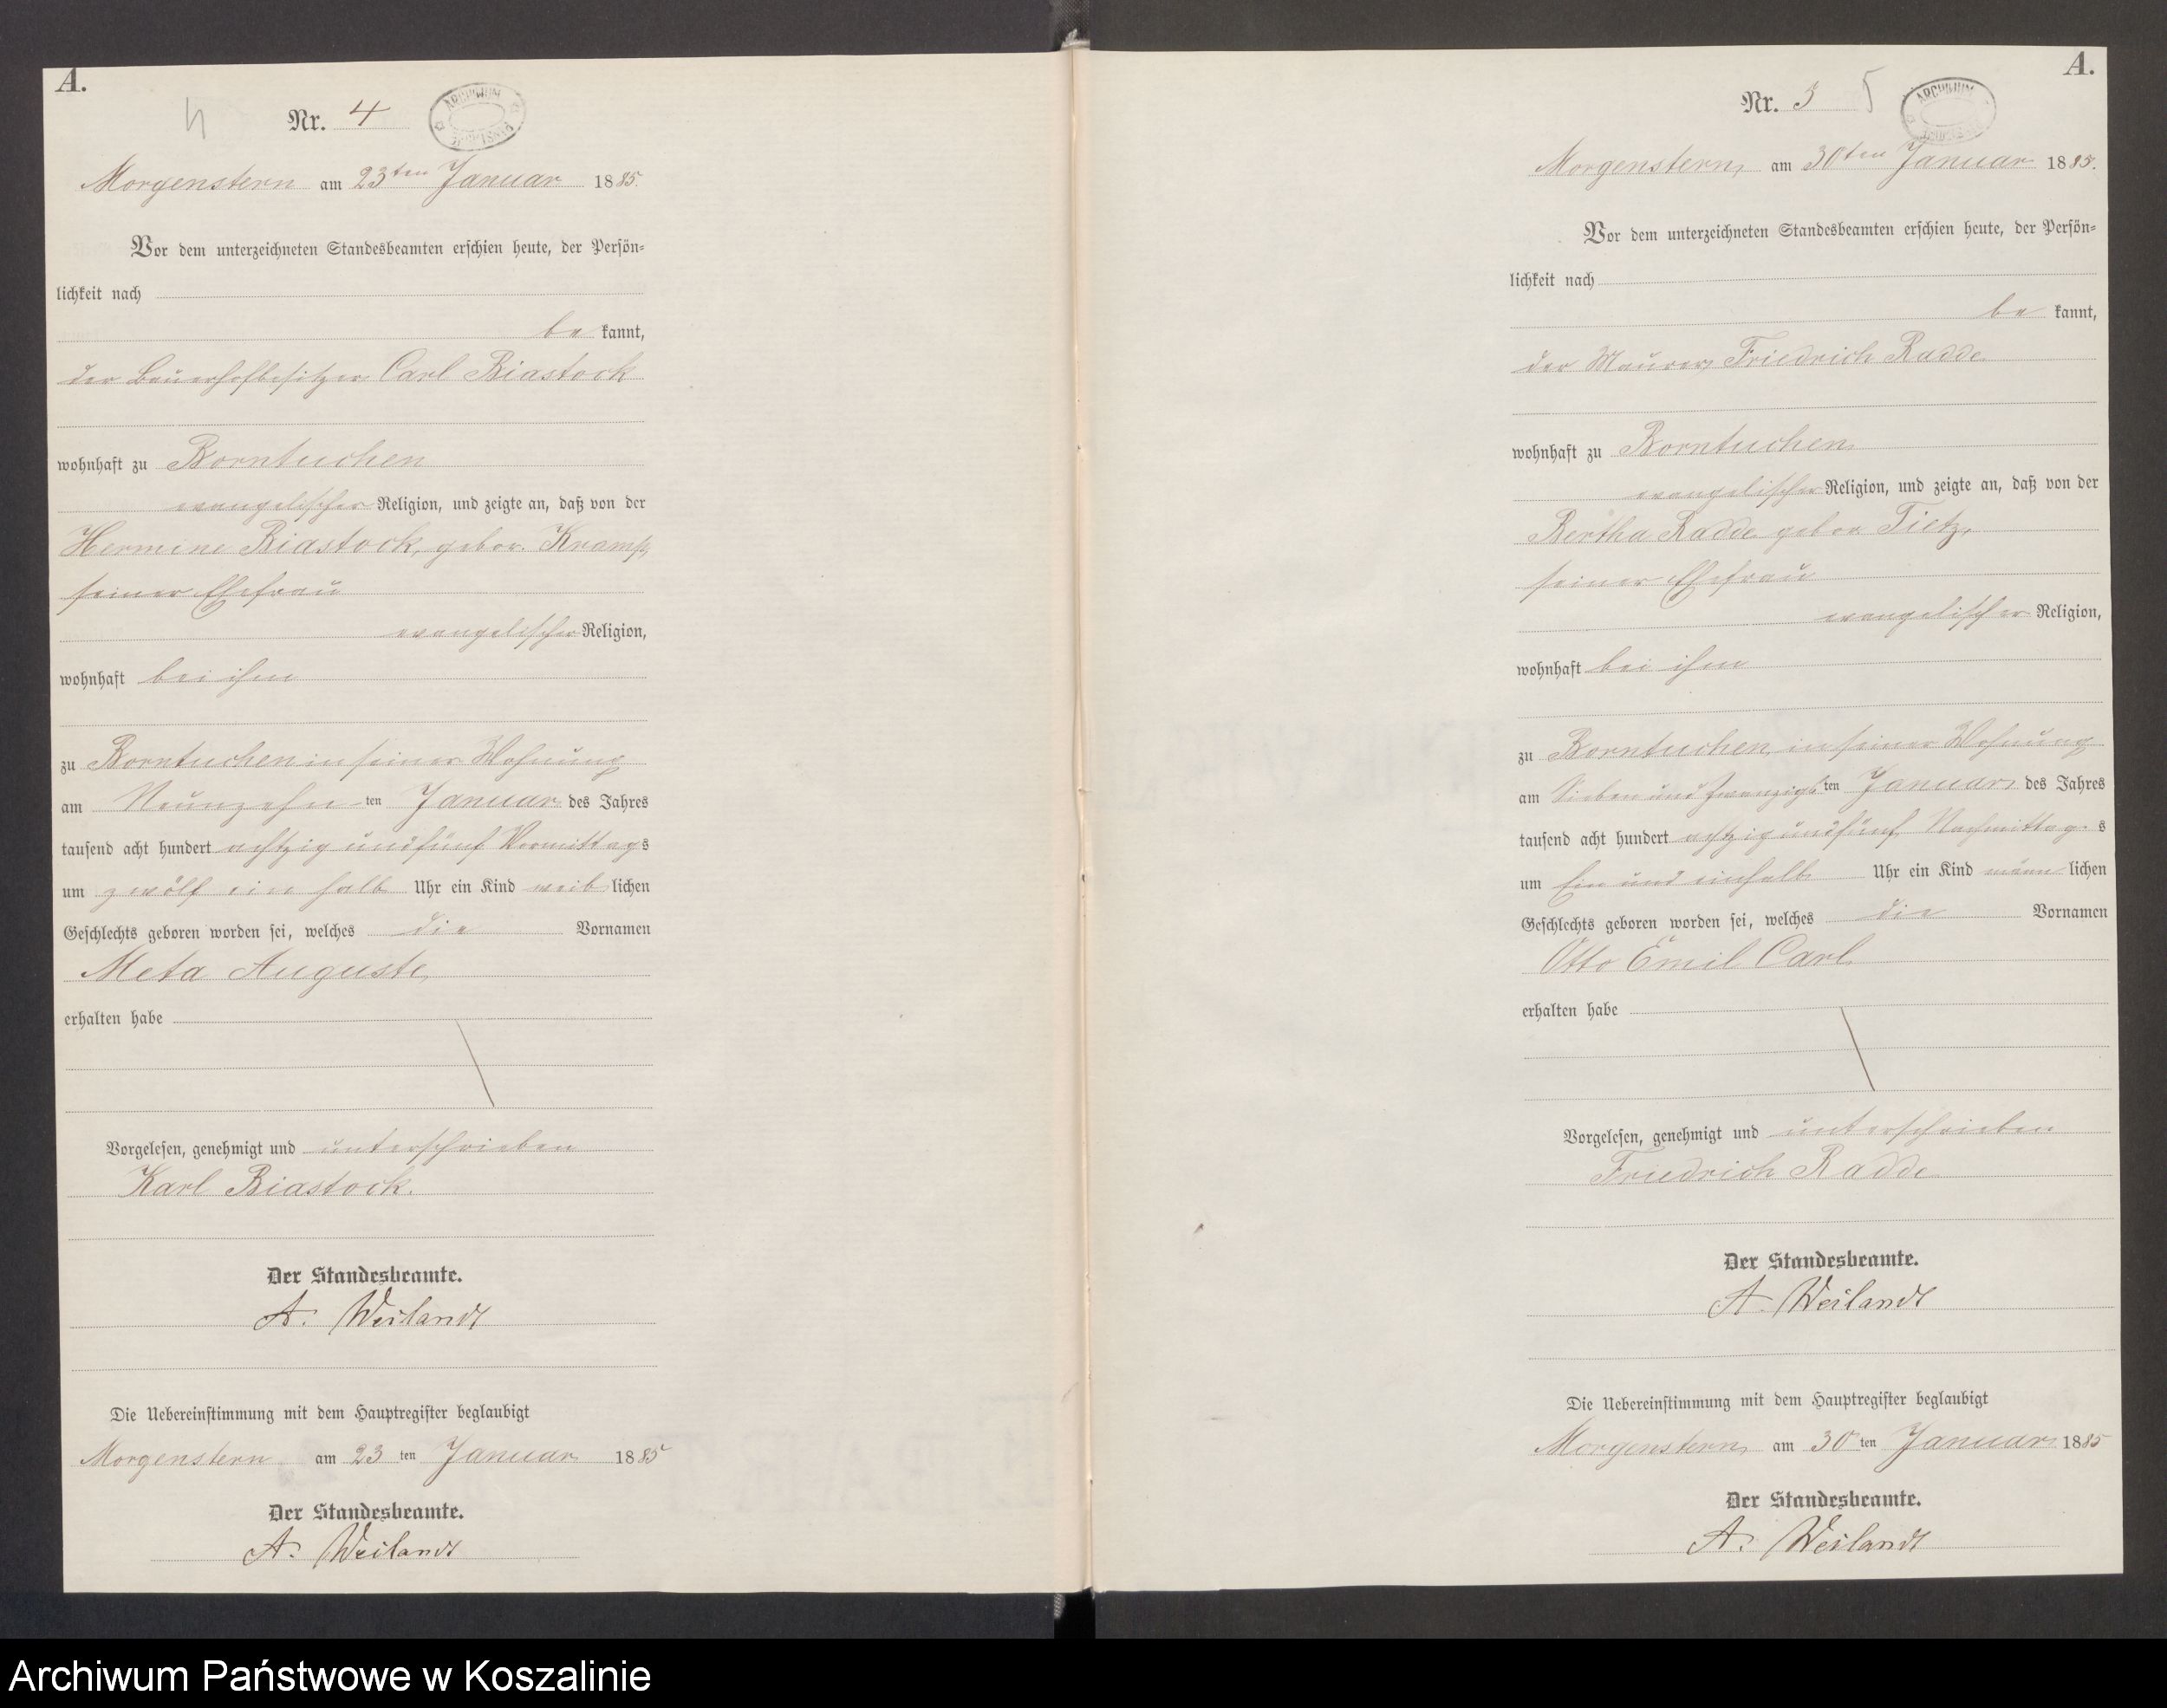 A.
4
Nr. 4
ARCHIWUM
Morgenstern am 23ten Januar 1885.
Vor dem unterzeichneten Standesbeamten erschien heute, der Persön-
lichkeit nach
be kannt,
der Bauerhofbesitzer Carl Biastock
wohnhaft zu Borntuchen
evangelischer Religion, und zeigte an, daß von der
Hermine Biastock, gebor.
seiner Ehefrau
evangelischer Religion,
wohnhaft bei ihm
zu Borntuchen in seiner Wohnung
am Neunzehn ten Januar des Jahres
tausend acht hundert achtzig und fünf Vormittags
um zwölf ein halb Uhr ein Kind weib lichen
Geschlechts geboren worden sei, welches die Vornamen
Meta Auguste
erhalten habe
Vorgelesen, genehmigt und unterschrieben
Karl Biastock.
Der Standesbeamte.
A. Weilandt
Die Uebereinstimmung mit dem Hauptregister beglaubigt
Morgenstern am 23 ten Januar 1885
Der Standesbeamte.
A. Weilandt
A.
Nr. 5
5
ARCHIWUM
Morgenstern, am 30ten Januar 1885.
Vor dem unterzeichneten Standesbeamten erschien heute, der Persön-
lichkeit nach
be kannt,
der Maurer Friedrich Radde
wohnhaft zu Borntuchen
evangelischer Religion, und zeigte an, daß von der
Bertha Radde gebor. Tietz,
seiner Ehefrau
evangelischer Religion,
wohnhaft bei ihm
zu Borntuchen, in seiner Wohnung
am Sieben und zwanzigs ten Januar des Jahres
tausend acht hundert achtzig und fünf Nachmittag s
um Ein und einhalb Uhr ein Kind männ lichen
Geschlechts geboren worden sei, welches die Vornamen
Otto Emil Carl
erhalten habe
Vorgelesen, genehmigt und unterschrieben
Friedrich Radde
Der Standesbeamte.
A. Weilandt
Die Uebereinstimmung mit dem Hauptregister beglaubigt
Morgenstern, am 30 ten Januar 1885
Der Standesbeamte.
A. Weilandt
Archiwum Państwowe w Koszalinie